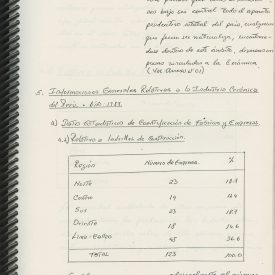 nos bajo su control todo el aparato
productivo estatal del país, cualquiera
que fuera su naturaleza,
dos dentro de este ámbito, diversas em
presas vinculadas a la Cerámica
(Ver Anexo nº 01)
5. Informaciones Generales Relativas a la Industria Cerámica
del Perú. Año 1983.
a) Datos Estadísticos de Cuantificación de Fábricas y Empresas
a.1) Relativo a Ladrillos de Construcción.
Región Número de Empresas %
Norte 23 18.7
Centro 14 11.4
Sur 23 18.7
Oriente 18 14.6
Lima-Callao 45 36.6
TOTAL 123 100.0